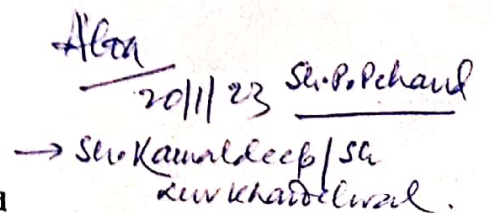 20/1/23 Sh.P.Pchand
→ Sh.Kamaldeep/Sh
Luv Khandelwal.
d